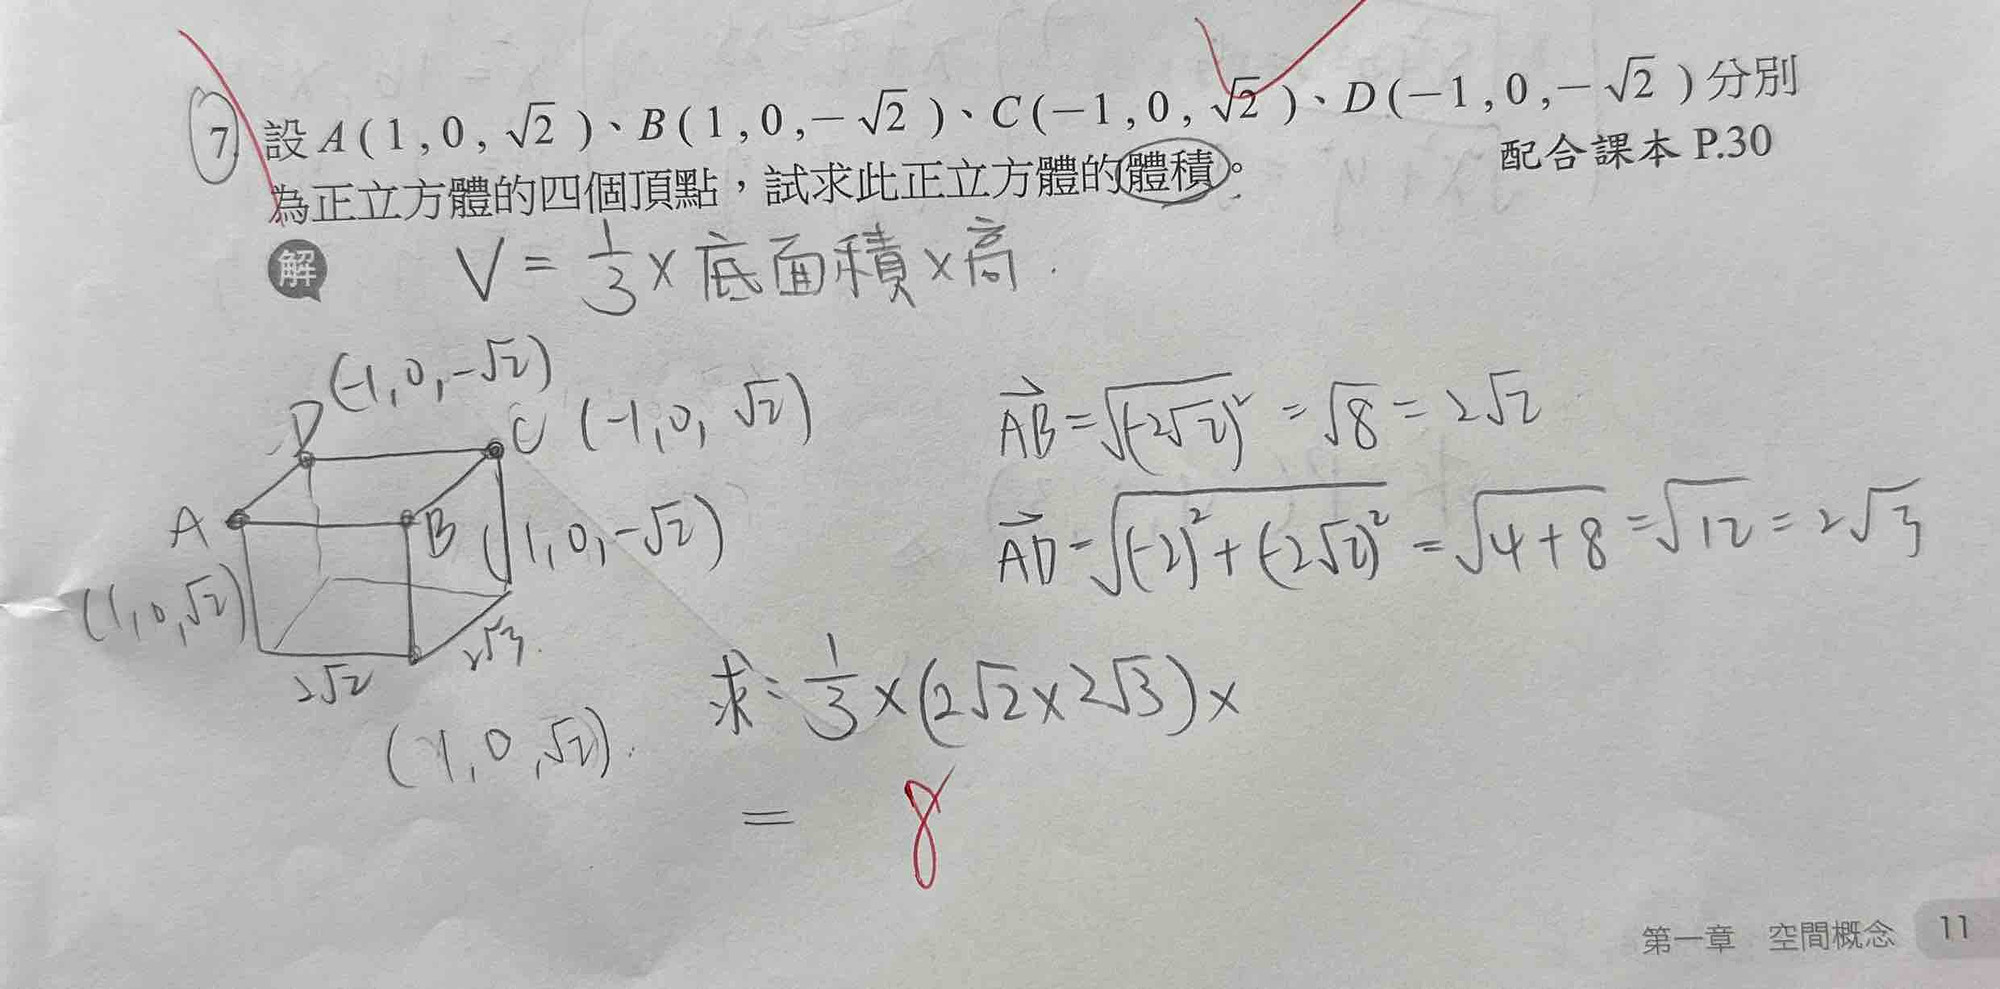 7. 設 A ( 1 , 0 , √2 )、B ( 1 , 0 , −√2 )、C ( −1 , 0 , √2 )、D ( −1 , 0 , −√2 ) 分別
為正立方體的四個頂點，試求此正立方體的體積。
配合課本 P.30
解
V = 1/3 × 底面積 × 高 .
(-1, 0, -√2)
D
C (-1, 0, √2)
A
B (1, 0, -√2)
(1, 0, √2)
2√2
2√3
(1, 0, √2).
AB = √(-2√2)² = √8 = 2√2
AD = √(-2)² + (-2√2)² = √4+8 = √12 = 2√3
求: 1/3 × (2√2 × 2√3) ×
= 8
第一章 空間概念 11